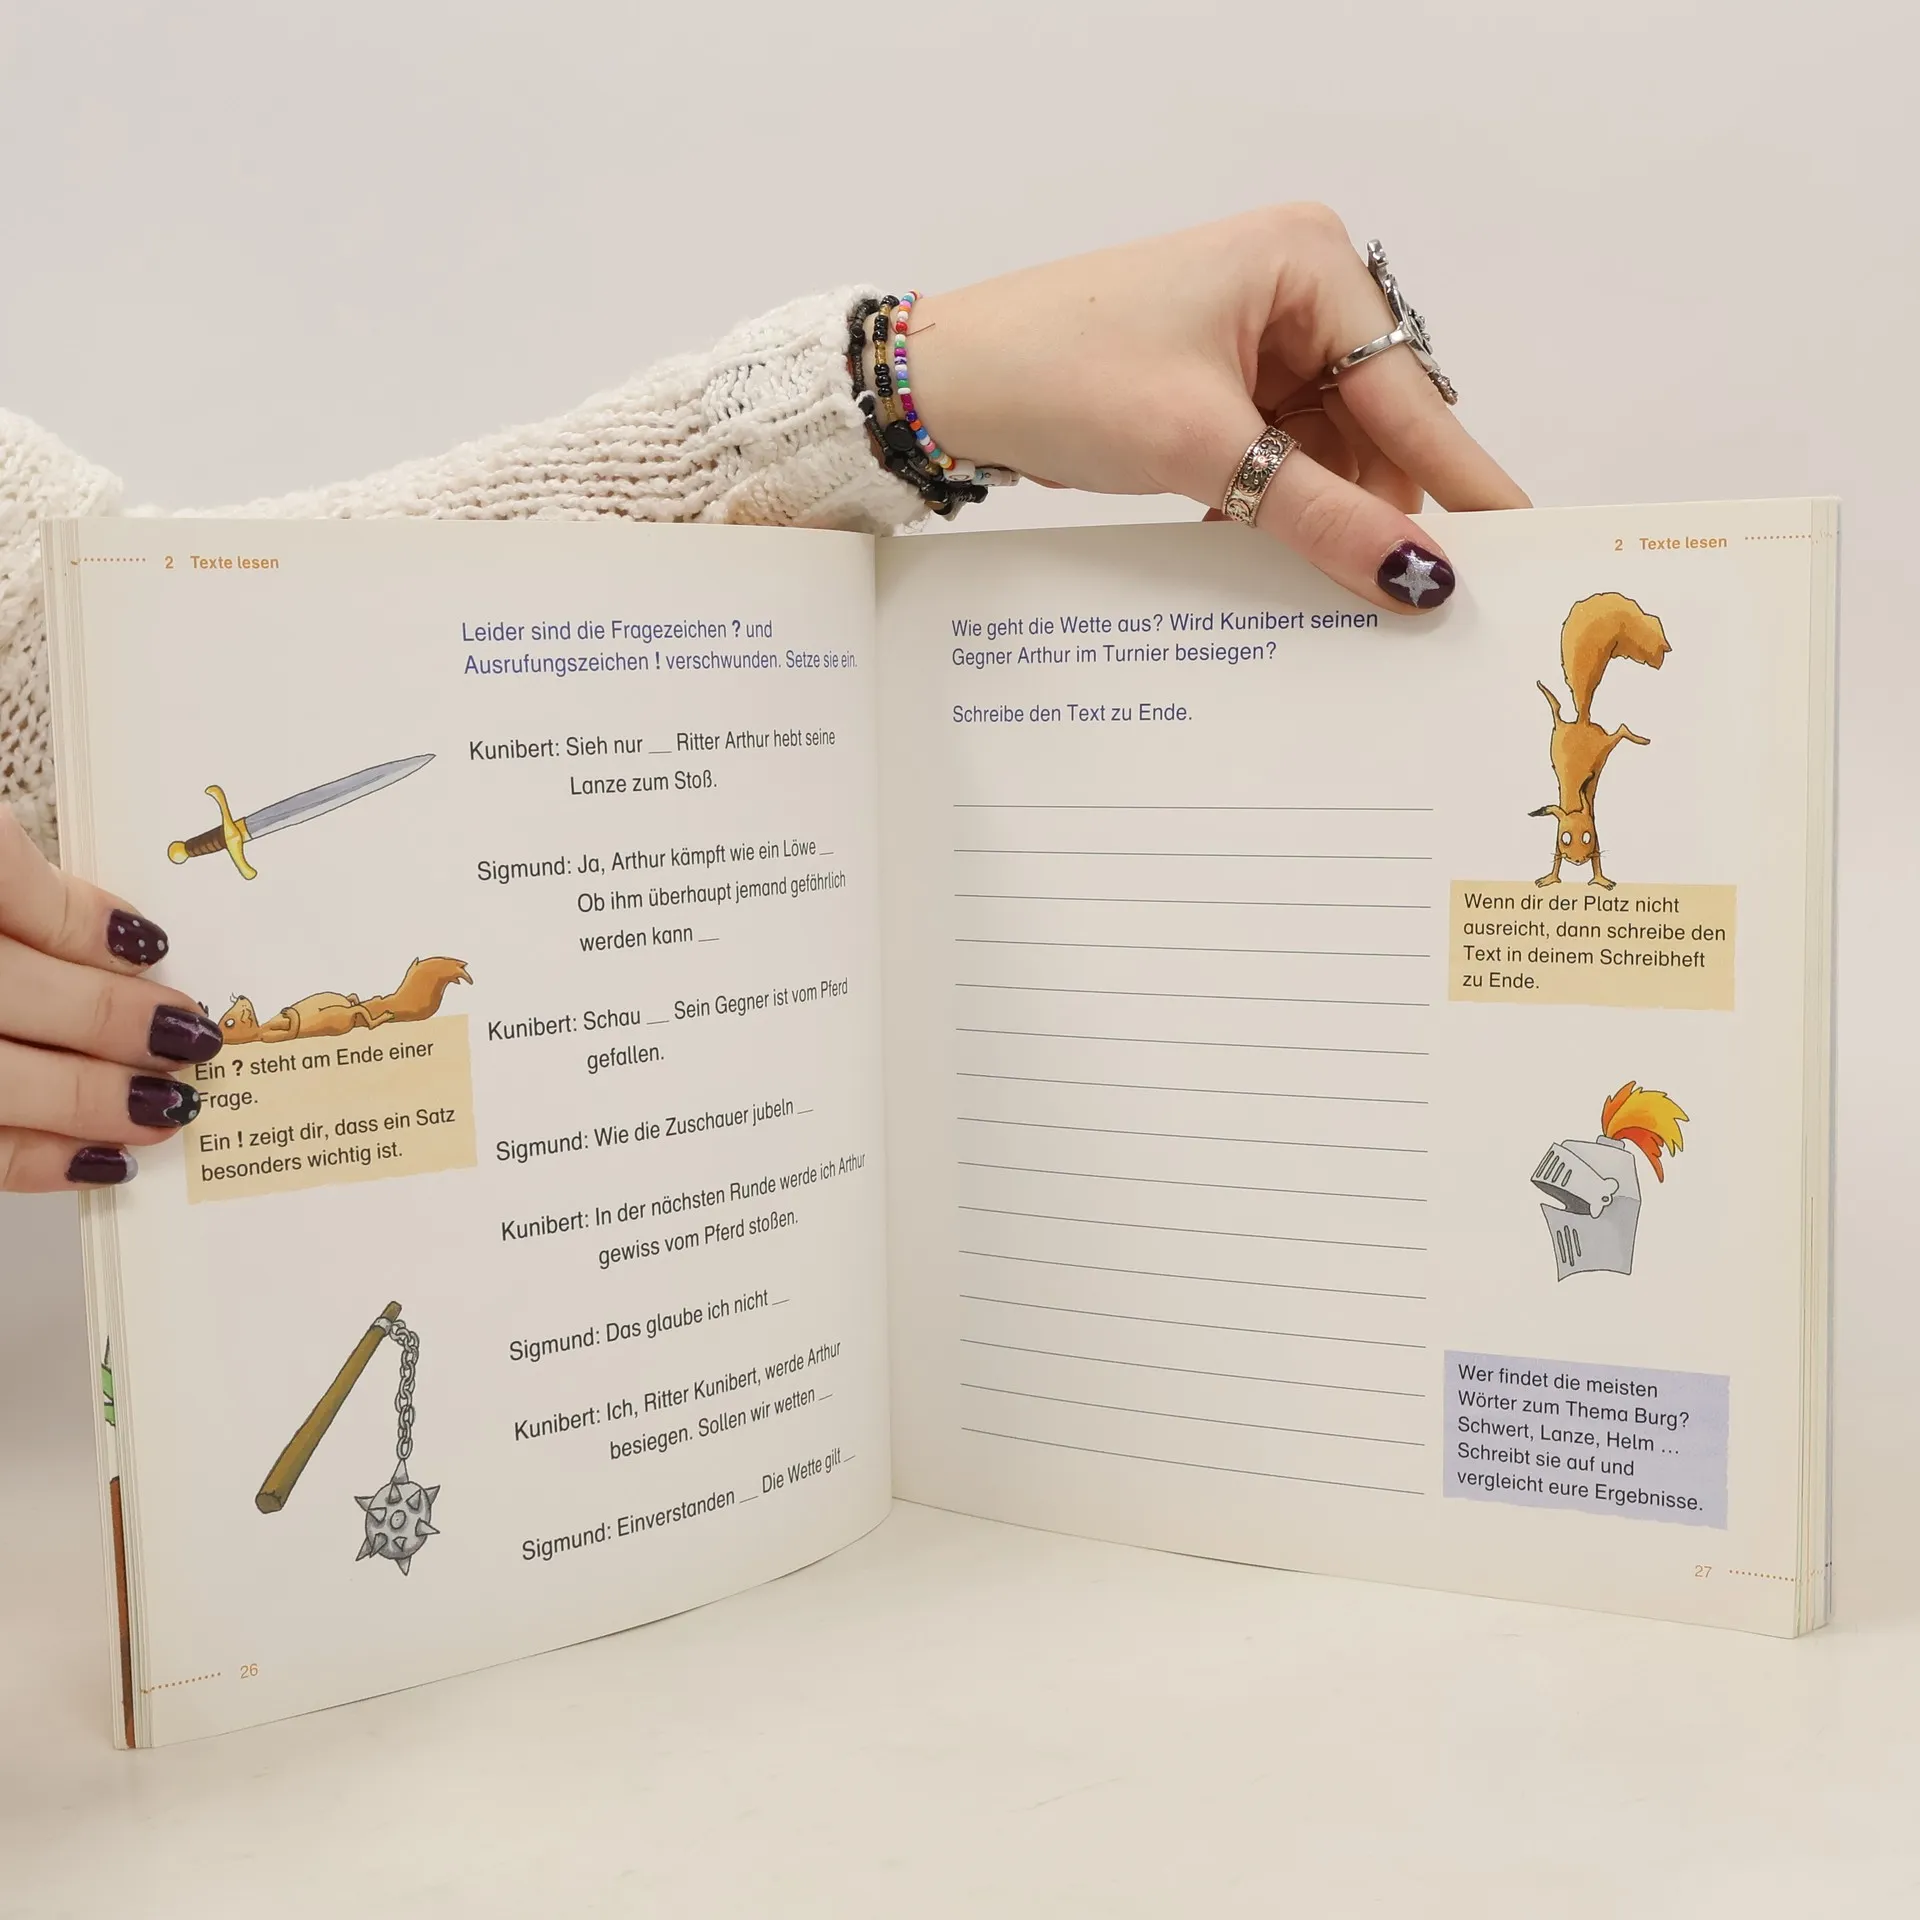 2 Texte lesen
Leider sind die Fragezeichen ? und
Ausrufungszeichen ! verschwunden. Setze sie ein.
Kunibert: Sieh nur __ Ritter Arthur hebt seine
Lanze zum Stoß.
Sigmund: Ja, Arthur kämpft wie ein Löwe __
Ob ihm überhaupt jemand gefährlich
werden kann __
Kunibert: Schau __ Sein Gegner ist vom Pferd
gefallen.
Sigmund: Wie die Zuschauer jubeln __
Kunibert: In der nächsten Runde werde ich Arthur
gewiss vom Pferd stoßen.
Sigmund: Das glaube ich nicht __
Kunibert: Ich, Ritter Kunibert, werde Arthur
besiegen. Sollen wir wetten __
Sigmund: Einverstanden __ Die Wette gilt __
Ein ? steht am Ende einer
Frage.
Ein ! zeigt dir, dass ein Satz
besonders wichtig ist.
26
2 Texte lesen
Wie geht die Wette aus? Wird Kunibert seinen
Gegner Arthur im Turnier besiegen?
Schreibe den Text zu Ende.
Wenn dir der Platz nicht
ausreicht, dann schreibe den
Text in deinem Schreibheft
zu Ende.
Wer findet die meisten
Wörter zum Thema Burg?
Schwert, Lanze, Helm ...
Schreibt sie auf und
vergleicht eure Ergebnisse.
27